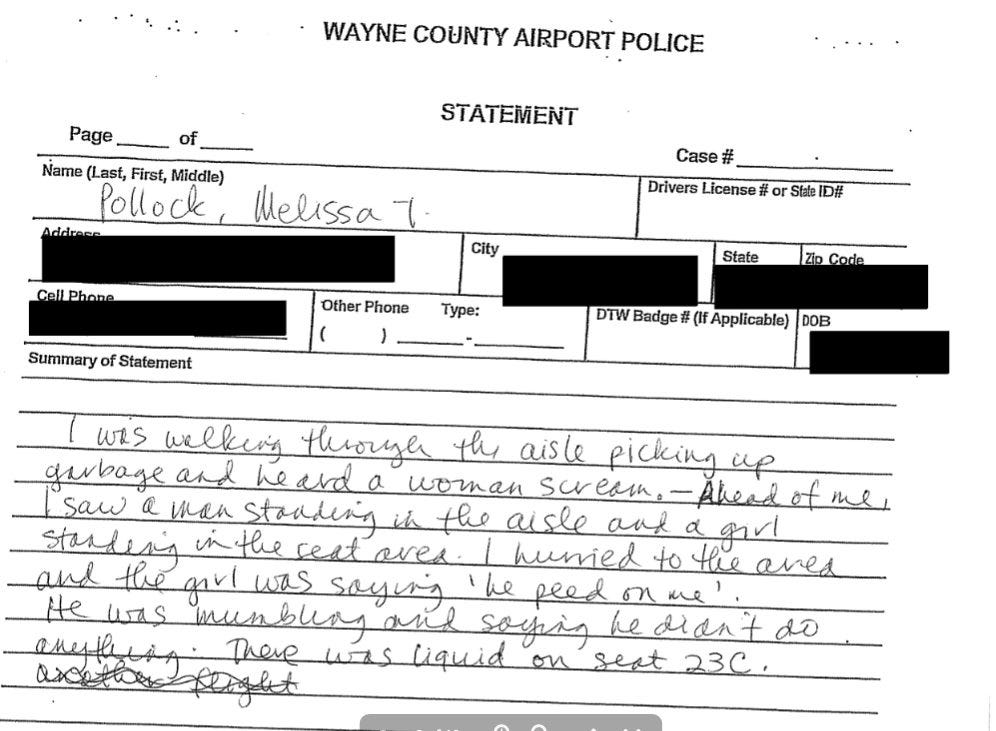 WAYNE COUNTY AIRPORT POLICE
STATEMENT
Page ____ of ____
Case # ____
Name (Last, First, Middle)
Drivers License # or State ID#
Pollock, Melissa T.
Address
City
State
Zip Code
Cell Phone
Other Phone Type:
( ) ____-____
DTW Badge # (If Applicable)
DOB
Summary of Statement
I was walking through the aisle picking up
garbage and heard a woman scream. – Ahead of me,
I saw a man standing in the aisle and a girl
standing in the seat area. I hurried to the area
and the girl was saying 'he peed on me'.
He was mumbling and saying he didn't do
anything. There was liquid on seat 23C.
another flight